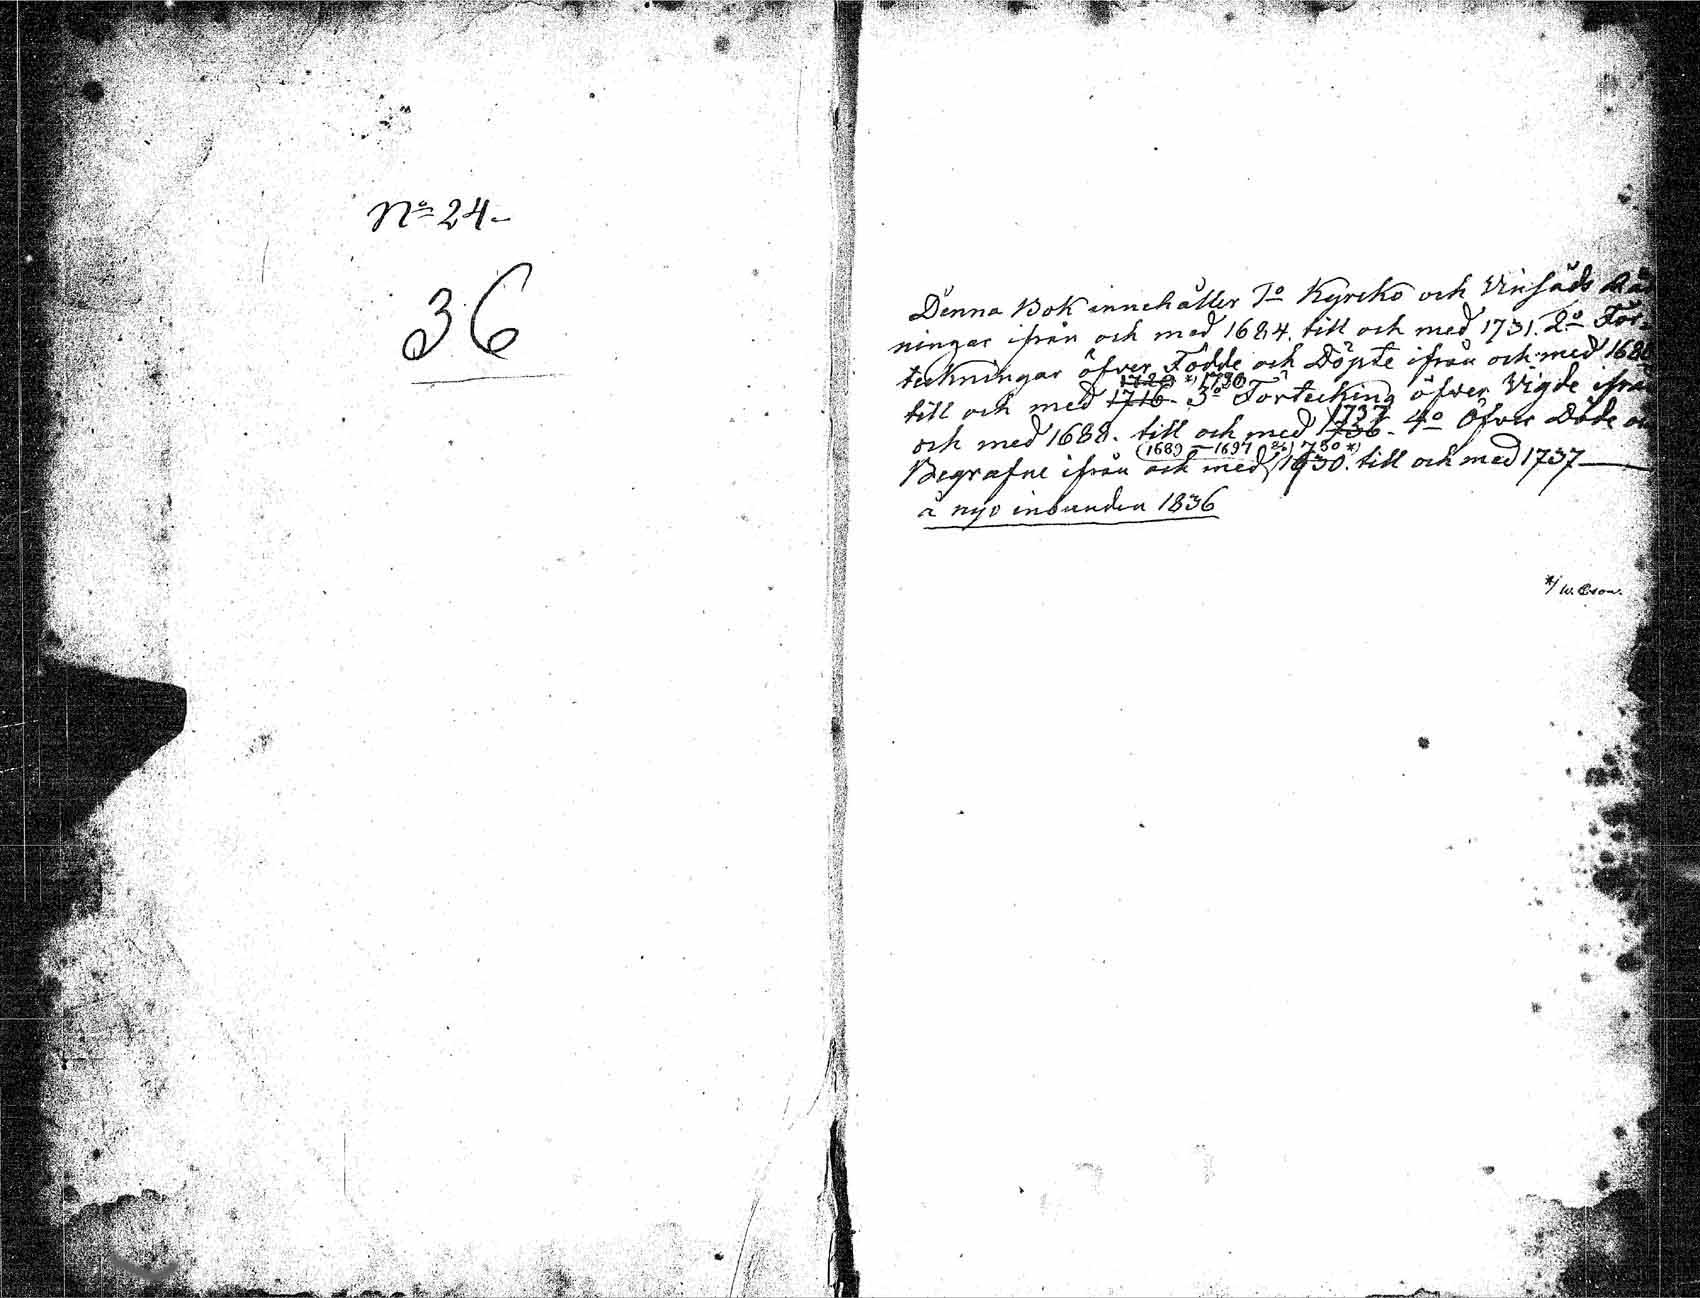 No 24.
36
Denna Bok innehåller 1o Kyrcko och Vinsäds Räk
ningar ifrån och med 1684. till och med 1731. 2o För-
teckningar öfver Födde och Döpte ifrån och med 1688
1720 *) 1730
till och med 1716. 3o Förteckning öfver Vigde ifrån
1737
och med 1688. till och med 1736. 4o Öfver Döde och
(1689 – 1697 &) 1730 *)
Begrafne ifrån och med 1730. till och med 1737
å nyo inbunden 1836
*)